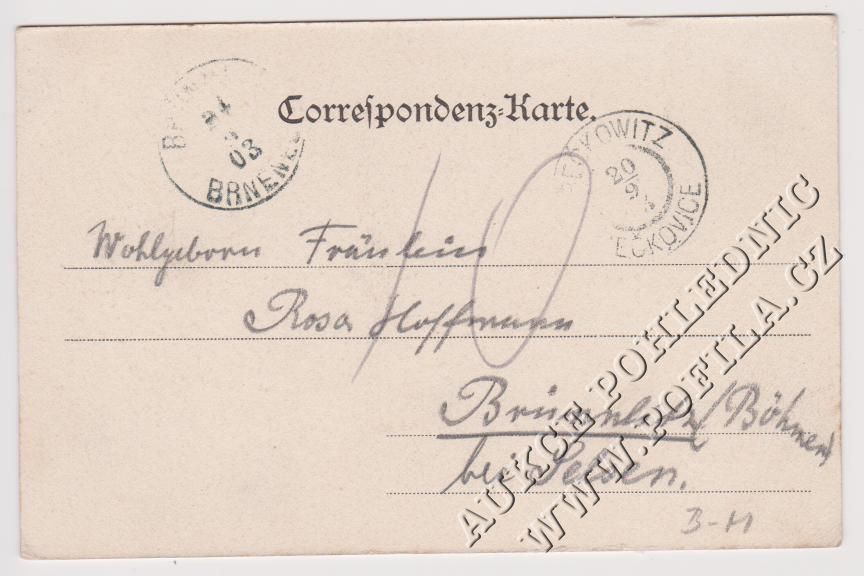 Correspondenz-Karte.
BRNĚNEC
24
03
BECKOWITZ
20
9
ECKOVICE
10
Wohlgeborn Fräulein
Rosa Hoffmann
Brünnlitz / Böhmen
bei
B-M
AUKCE POHLEDNIC
WWW.POFILA.CZ